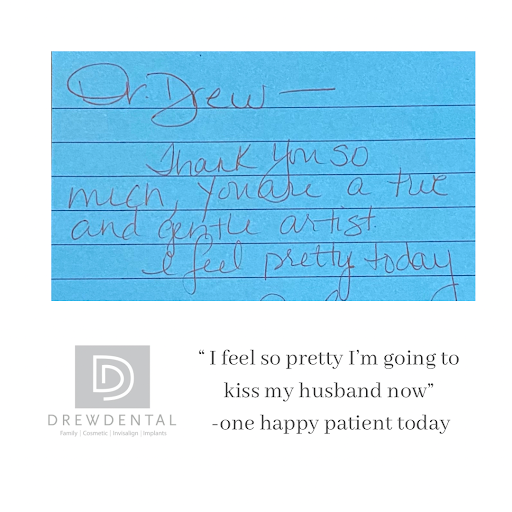 Dr. Drew —
Thank you so
much, you are a true
and gentle artist.
I feel pretty today
DREWDENTAL
Family | Cosmetic | Invisalign | Implants
“ I feel so pretty I’m going to
kiss my husband now”
-one happy patient today